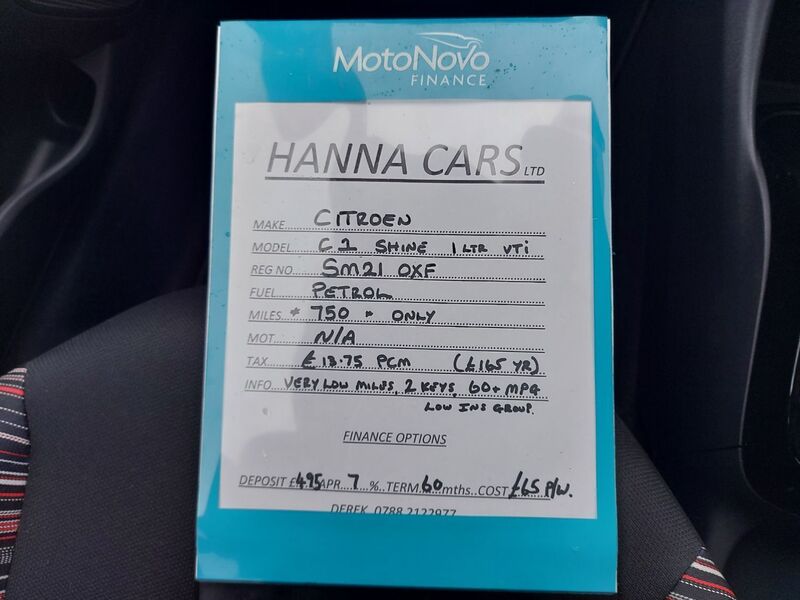 MotoNovo
FINANCE
HANNA CARS LTD
MAKE.... CITROEN
MODEL... C1 SHINE 1 LTR VTi
REG NO... SM21 OXF
FUEL... PETROL
MILES * 750 * ONLY
MOT... N/A
TAX... £13.75 PCM (£165 YR)
INFO... VERY LOW MILES, 2 KEYS, 60+ MPG
LOW INS GROUP.
FINANCE OPTIONS
DEPOSIT £495 APR..7..%..TERM 60 mths..COST £65 P/W.
DEREK 0788 2122977